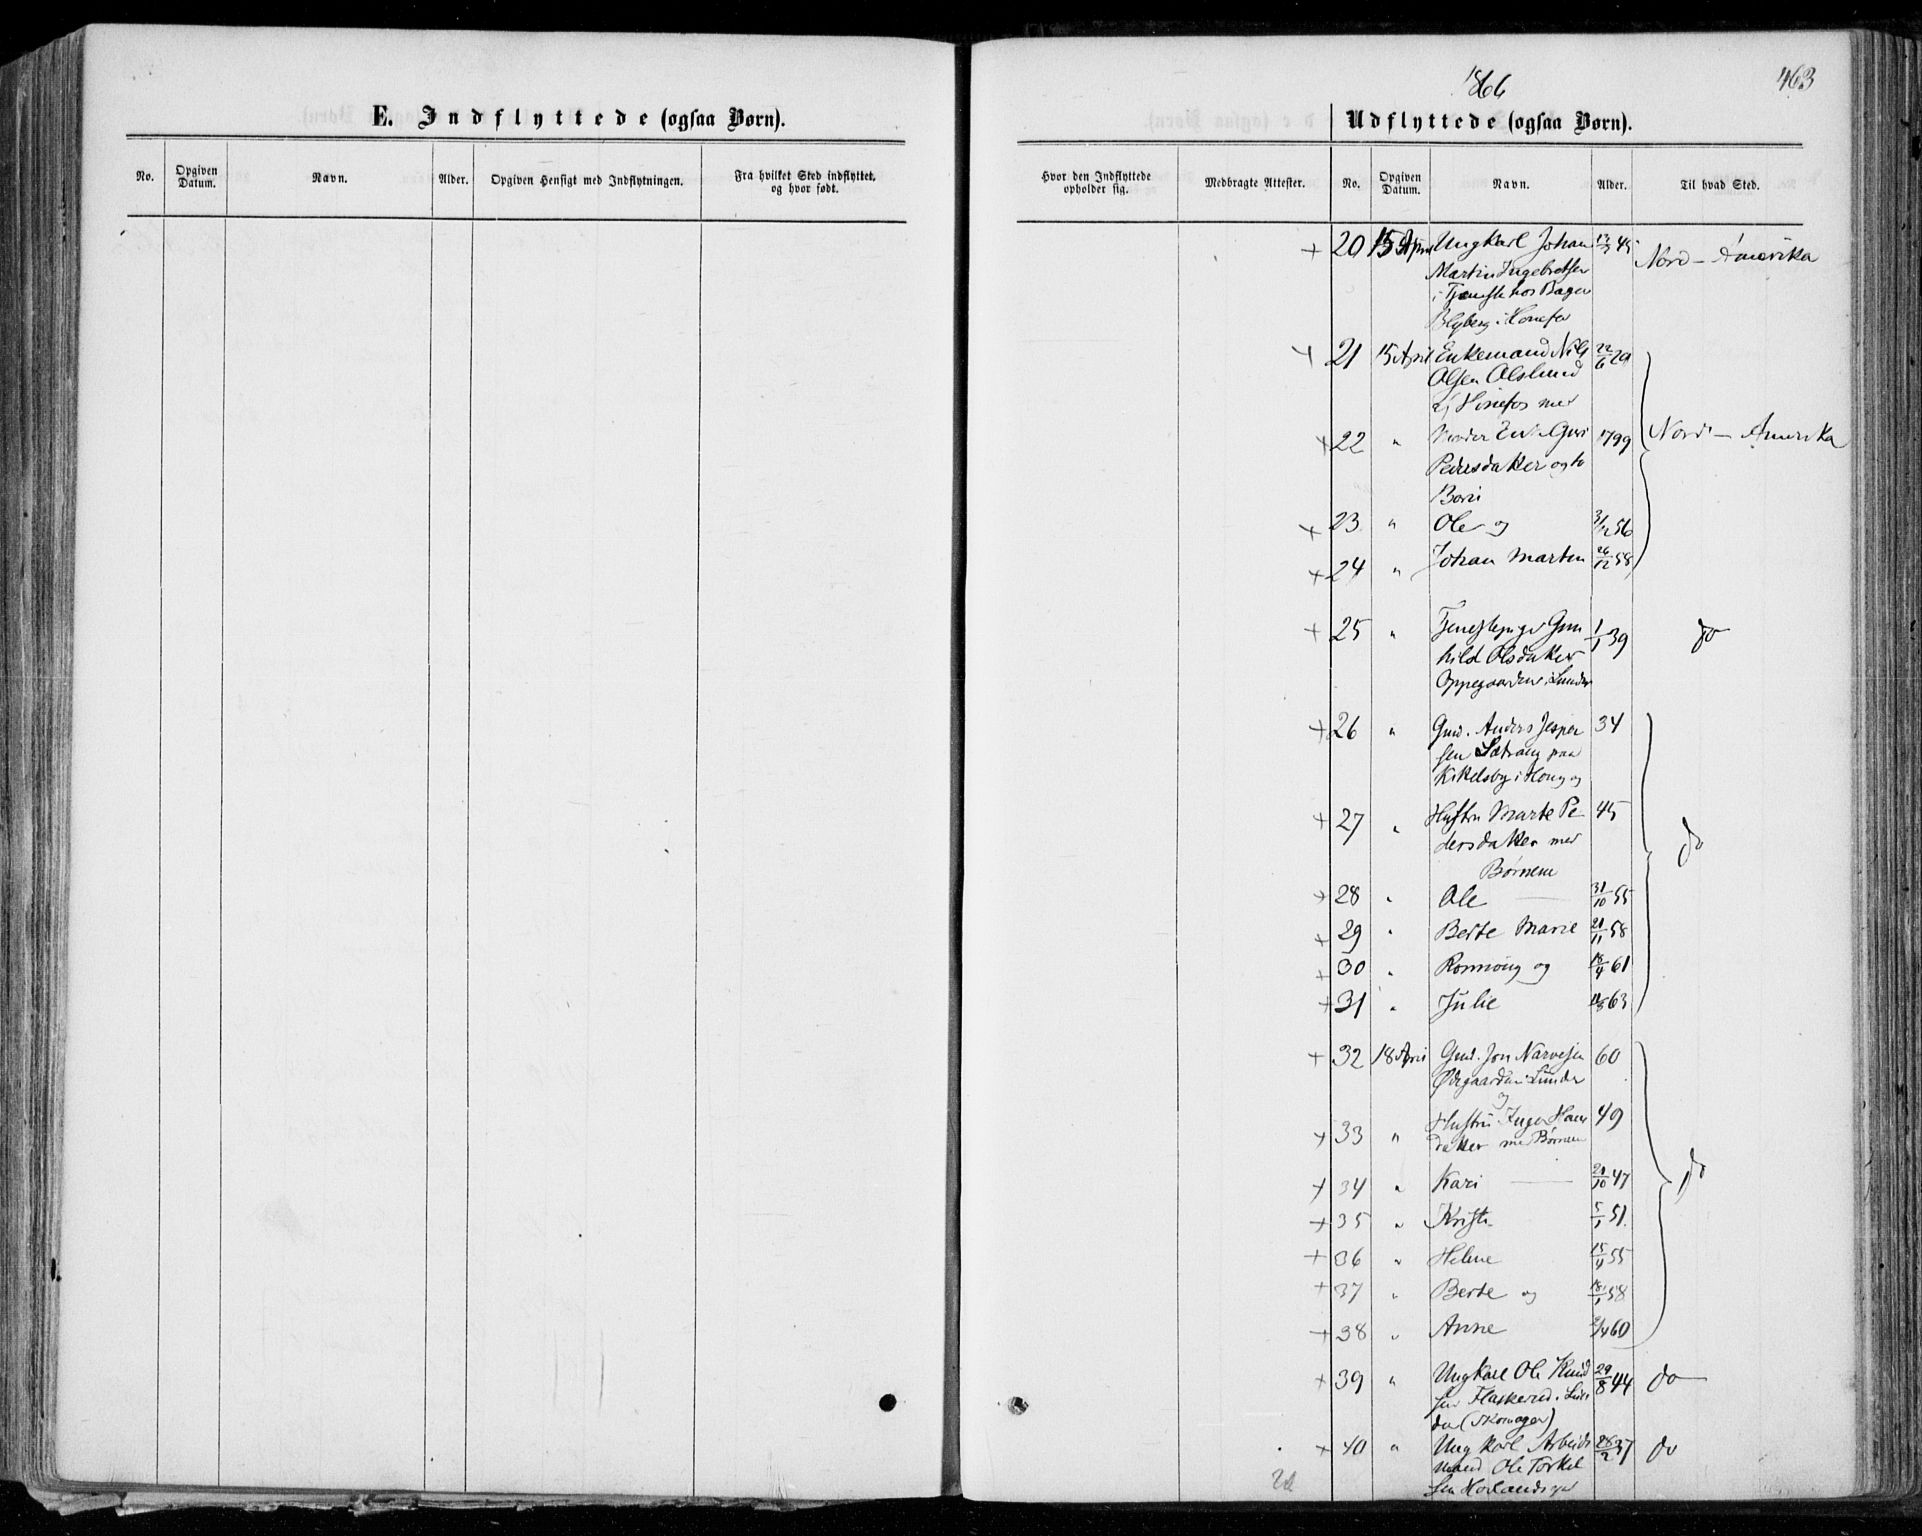 1866
463
E. Indflyttede (ogsaa Børn).
No.
Opgiven Datum.
Navn.
Alder.
Opgiven Hensigt med Indflytningen.
Fra hvilket Sted indflyttet, og hvor født.
Udflyttede (ogsaa Børn).
Hvor den Indflyttede opholder sig.
Medbragte Attester.
No.
Opgiven Datum.
Navn.
Alder.
Til hvad Sted.
+ 20 15 April Ungkarl Johan 45 Nord-Amerika
Martin Ingebretsen
i Tjeneste hos Bager
Blyberg i Hønefos
+ 21 15 April Enkemand Nils 22/6 29
Olsen Alslund
af Hønefos med
+ 22 " Moder Enke Guri 1799 Nord-Amerika
Pedersdatter og to
Børn
+ 23 " Ole og 56
+ 24 " Johan Martin 26/12 58
+ 25 " Tjenestepige Gun 1/1 39 do
hild Olsdatter
Oppegaarden i Lunder
+ 26 " Gmd. Anders Jesper 34
sen Sætrang paa
Kikelsby i Houg og
+ 27 " Hustru Marte Pe 45 do
dersdatter med
Børnene
+ 28 " Ole 31/10 55
+ 29 " Berte Marie 21/11 58
+ 30 " Rønnaug og 18/4 61
+ 31 " Julie 63
+ 32 18 April Gmd. Jon Narvesen 60
Ødegaarden i Lunder
og
+ 33 " Hustru Inger Hans 49
datter med Børnene
+ 34 " Kari 21/10 47 do
+ 35 " Kristi 5/1 51.
+ 36 " Helene 15/4 55
+ 37 " Berte og 18/1 58
+ 38 " Anne 2/4 60
+ 39 " Ungkarl Ole Knud 29/8 44 do
sen Flaskerud i Lun
der (Skomager)
+ 40 " Ungkarl Arbeids 28/2 37 do
mand Ole Torkel
sen